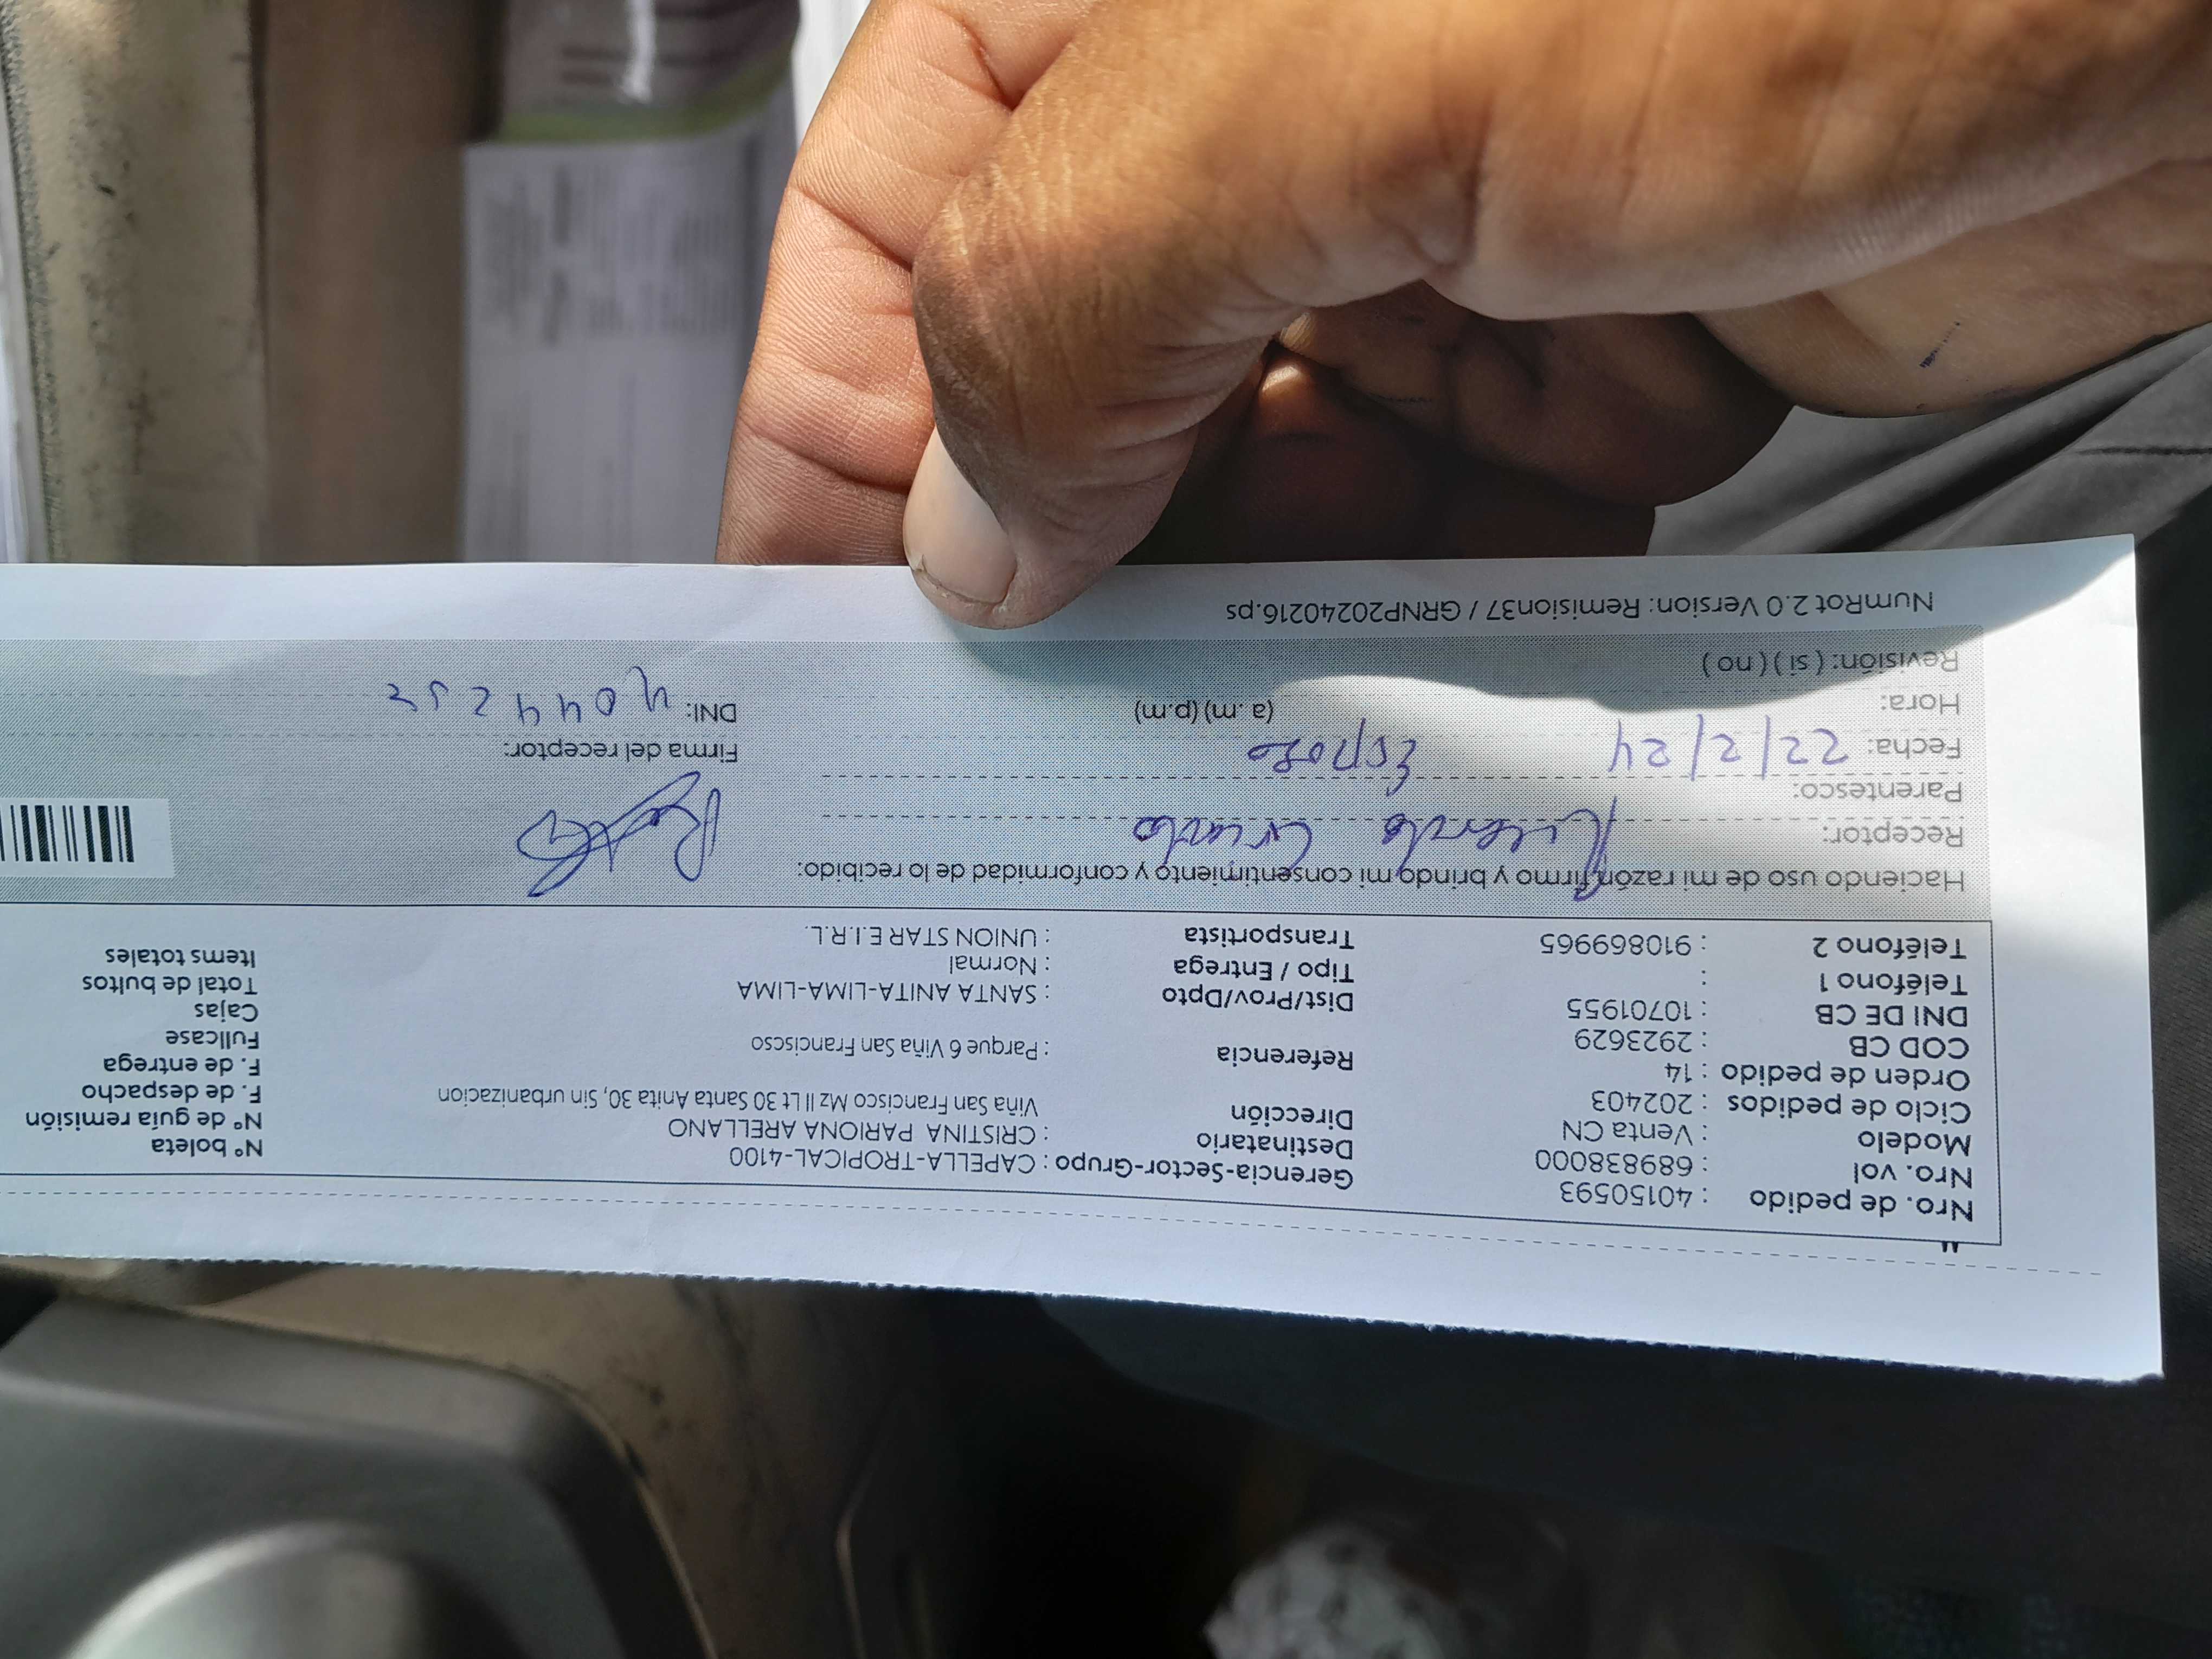 Nro. de pedido : 40150593 Gerencia-Sector-Grupo : CAPELLA-TROPICAL-4100 N° boleta
Nro. vol : 689838000 Destinatario : CRISTINA PARIONA ARELLANO N° de guía remisión
Modelo : Venta CN Dirección Viña San Francisco Mz II Lt 30 Santa Anita 30, Sin urbanizacion F. de despacho
Ciclo de pedidos : 202403 F. de entrega
Orden de pedido : 14 Referencia : Parque 6 Viña San Franciscso Fullcase
COD CB : 2923629 Cajas
DNI DE CB : 10701955 Dist/Prov/Dpto : SANTA ANITA-LIMA-LIMA Total de bultos
Teléfono 1 : Tipo / Entrega : Normal Items totales
Teléfono 2 : 910869965 Transportista : UNION STAR E.I.R.L.
Haciendo uso de mi razón firmo y brindo mi consentimiento y conformidad de lo recibido:
Receptor:
Parentesco: Esposo
Fecha: 22/2/24 Firma del receptor:
Hora: (a .m) (p.m) DNI:
Revisión: ( si ) ( no )
NumRot 2.0 Version: Remision37 / GRNP20240216.ps